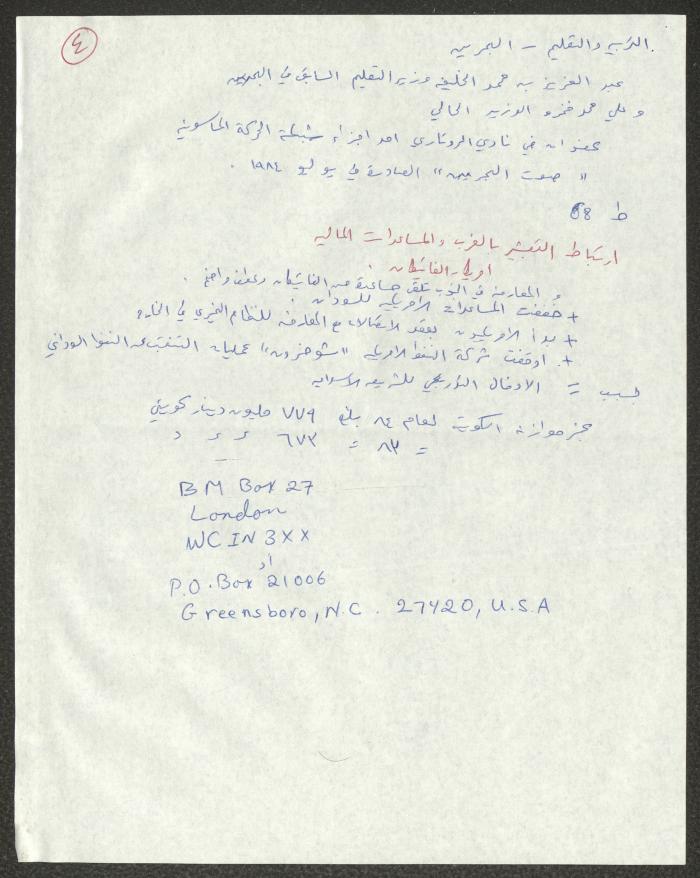 ٤
التربية والتعليم - البحرين
عبد العزيز بن محمد الخليفه وزير التعليم السابق في البحرين
و علي محمد فخرو الوزير الحالي
عضوان في نادي الروتاري احد اجزاء شبكة الحركة الماسونية
"صوت البحرين" الصادرة في يوليو ١٩٨٤ .
ط 68
ارتباط التبشير بالغرب والمساعدات الماليه
امريكا - الفاتيكان .
المعارضة في الجنوب تلقى من الفاتيكان وعطف واضح .
+ خففت المساعدات الامريكية للسودان .
+ بدأ الامريكيون بعقد الاتصالات مع المعارضة للنظام النميري في الخارج
+ . اوقفت شركة النفط الامريكية "شيفرون" عمليات التنقيب عن النفط السوداني
لسبب = الادخال التدريجي للشريعة الاسلاميه
عجز موازنة الكويت لعام ٨٤ بلغ ٧٧٩ مليون دينار كويتي
= ٨٣ = ٦٧٣ = = د
BM Box 27
London
WC1N 3XX
او
P.O. Box 21006
Greensboro, N.C. 27420, U.S.A